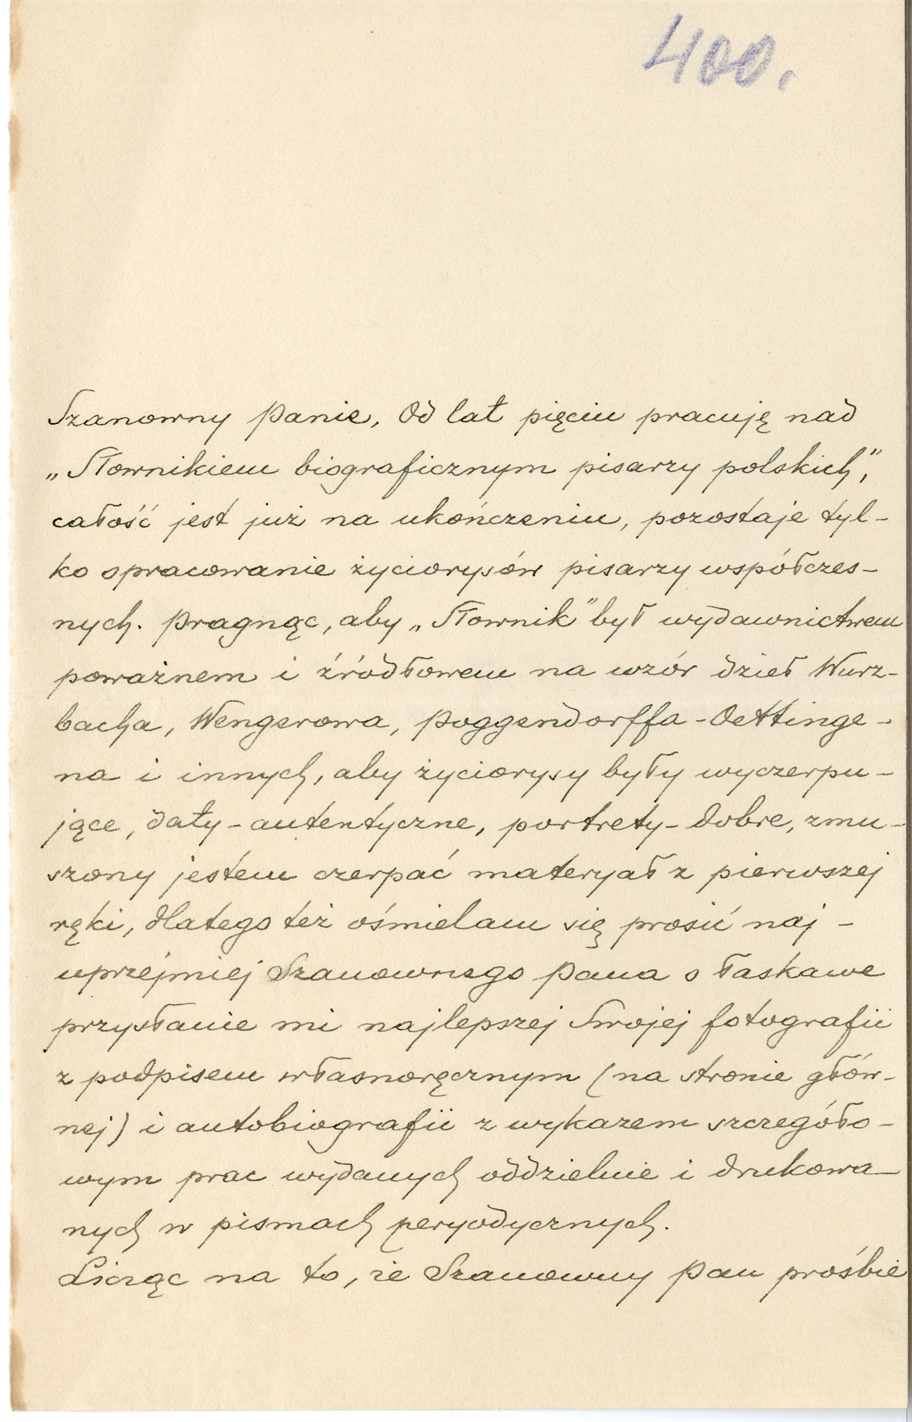 400.
Szanowny Panie, Od lat pięciu pracuję nad
„Słownikiem biograficznym pisarzy polskich”,
całość jest już na ukończeniu, pozostaje tyl-
ko opracowanie życiorysów pisarzy współczes-
nych. Pragnąc, aby „Słownik” był wydawnictwem
poważnem i źródłowem na wzór dzieł Wurz-
bacha, Wengerowa, Poggendorffa-Oettinge-
na i innych, aby życiorysy były wyczerpu-
jące, daty-autentyczne, portrety-dobre, zmu-
szony jestem czerpać materyał z pierwszej
ręki, dlatego też ośmielam się prosić naj-
uprzejmiej Szanownego Pana o łaskawe
przysłanie mi najlepszej Swojej fotografii
z podpisem własnoręcznym (na stronie głów-
nej) i autobiografii z wykazem szczegóło-
wym prac wydanych oddzielnie i drukowa-
nych w pismach peryodycznych.
Licząc na to, że Szanowny Pan prośbie